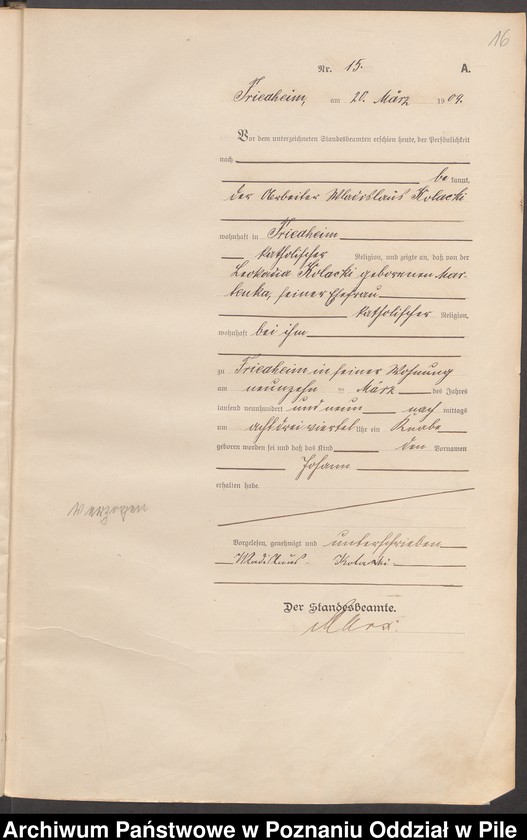 16
Nr. 15. A.
Friedheim, am 20. März 1909.
Vor dem unterzeichneten Standesbeamten erschien heute, der Persönlichkeit
nach
bekannt,
der Arbeiter Wladislaus Kolacki
wohnhaft in Friedheim
katholischer Religion, und zeigte an, daß von der
Leokadia Kolacki geborenen Mar-
lenka, seiner Ehefrau
katholischer Religion,
wohnhaft bei ihm
zu Friedheim in seiner Wohnung
am neunzehn ten März des Jahres
tausend neunhundert und neun nach mittags
um achtdreiviertel Uhr ein Knabe
geboren worden sei und daß das Kind den Vornamen
Johann
erhalten habe.
Verzogen
Vorgelesen, genehmigt und unterschrieben
Wladislaus Kolacki
Der Standesbeamte.
Marx.
Archiwum Państwowe w Poznaniu Oddział w Pile